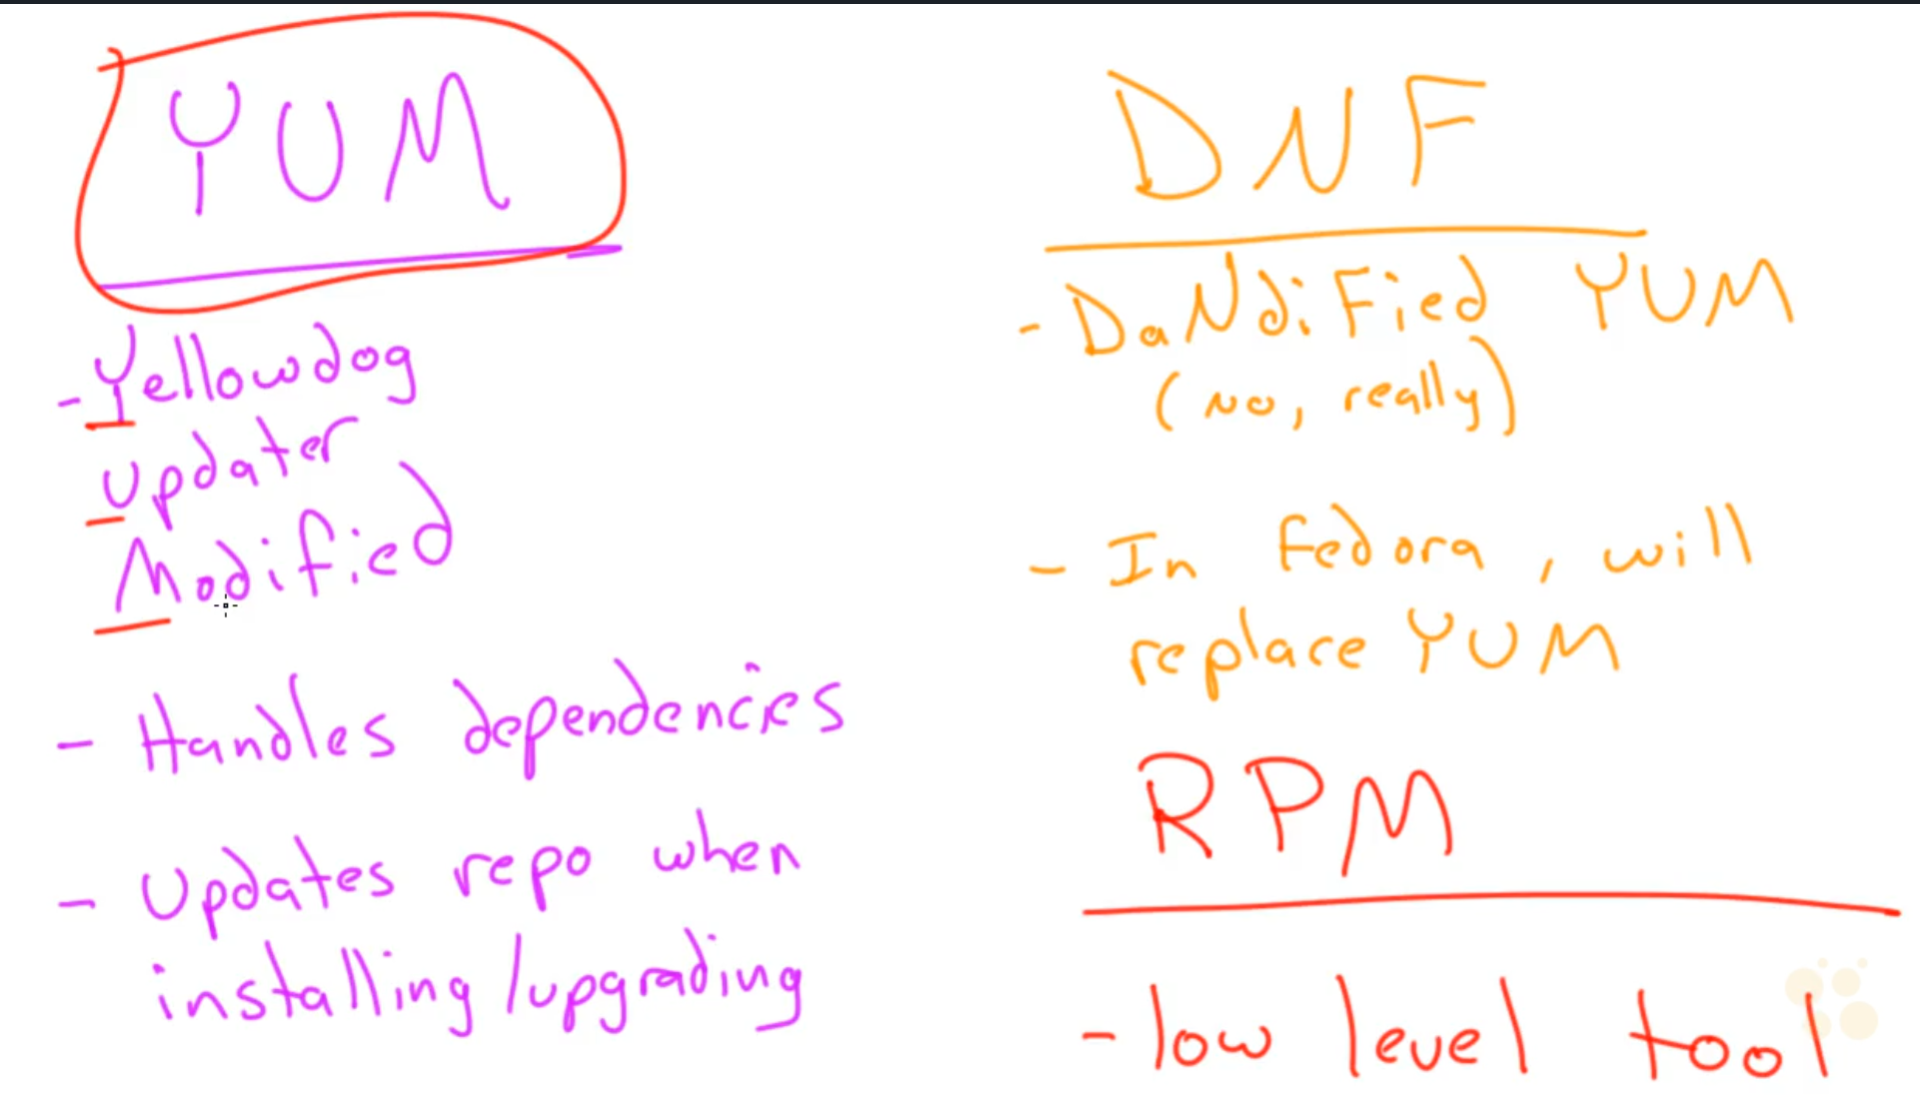 YUM
- Yellowdog
Updater
Modified
- Handles dependencies
- Updates repo when
installing/upgrading
DNF
- DaNdiFied YUM
(no, really)
- In Fedora, will
replace YUM
RPM
- low level tool